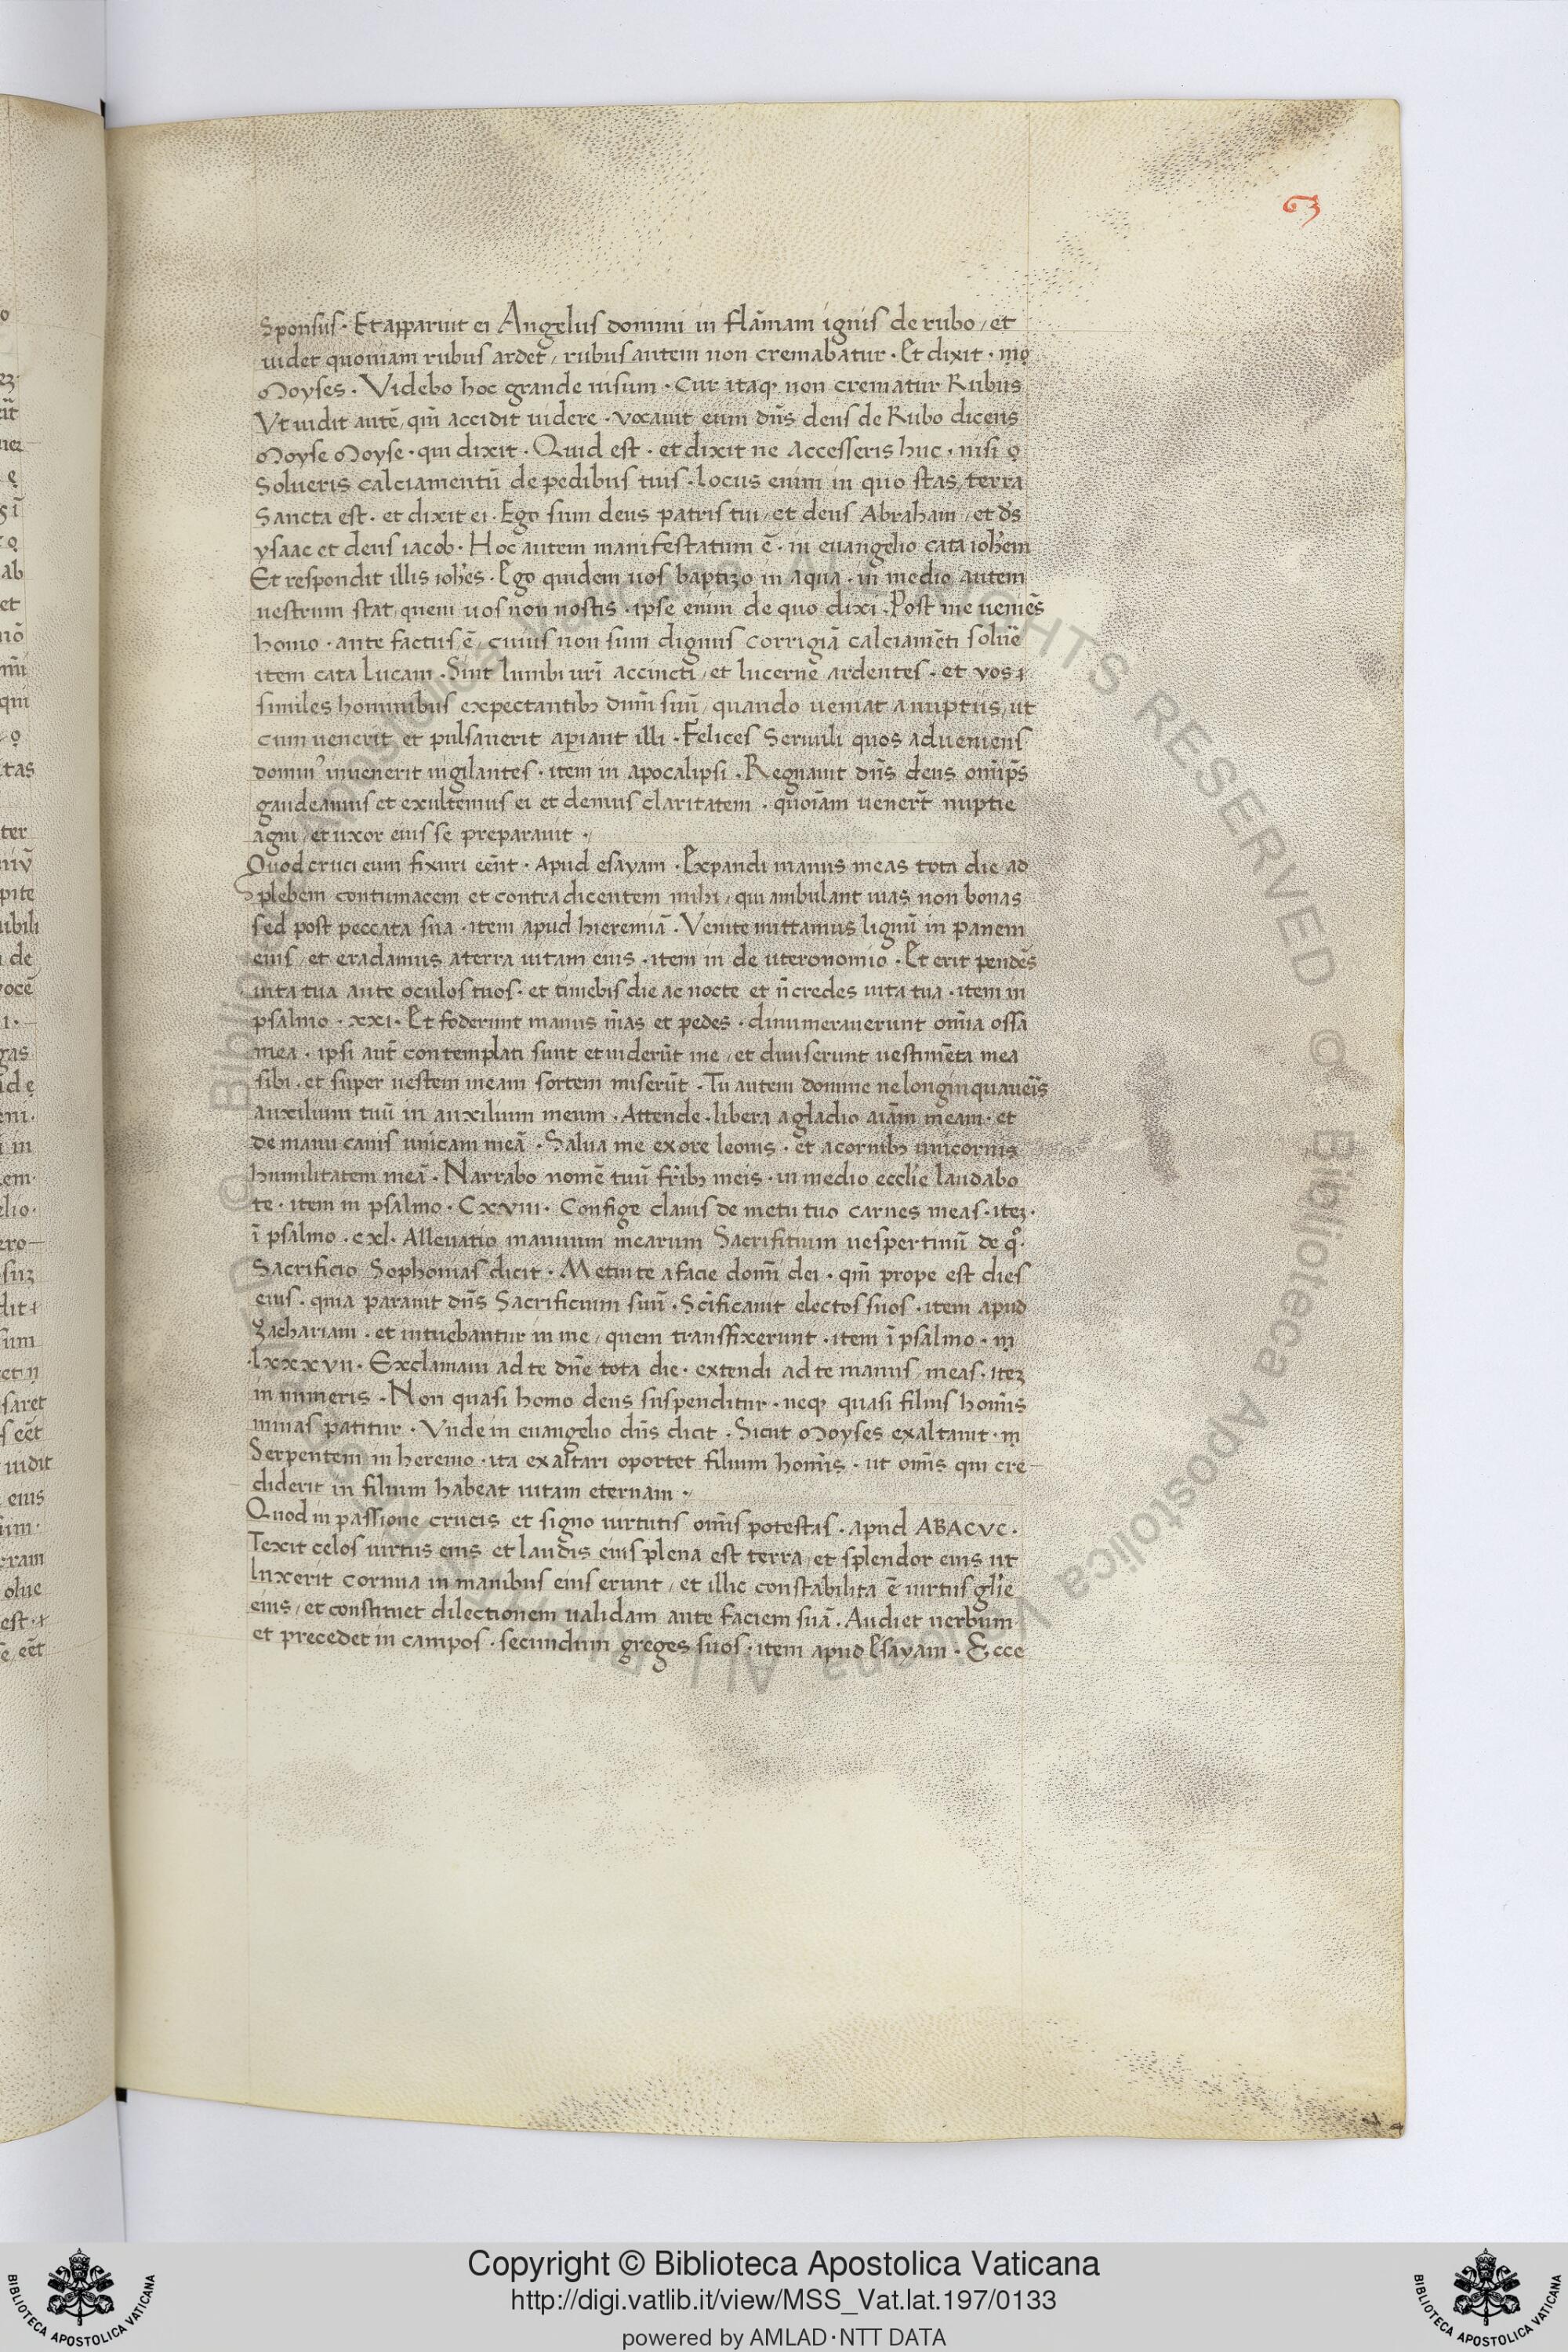 Sponsus · Et apparuit ei Angelus domini in flãmam ignis de rubo / et
uidet quoniam rubus ardet / rubus autem non cremabatur · Et dixit · mọ
Moyses · Videbo hoc grande uisum · Cur itaqꝫ non crematur Rubus
Vt uidit autẽ / qm̃ accidit uidere · uocauit eum dñs deus de Rubo dicens
Moyse Moyse · qui dixit · Quid est · et dixit ne accesseris huc · nisi ọ
Solueris calciamentũ de pedibus tuis · locus enim in quo stas terra
Sancta est · et dixit ei · Ego sum deus patris tui / et deus Abraham / et ds̃
ysaac et deus iacob · Hoc autem manifestatum ẽ · in euangelio cata ioh̃em
Et respondit illis ioh̃es · Ego quidem uos baptizo in aqua · in medio autem
uestrum stat / quem uos non nostis · ipse enim de quo dixi · Post me ueniẽs
homo · ante factus ẽ / cuius non sum dignus corrigiã calciamẽti soluẽ
item cata Lucam · Sint lumbi uri᷉ accincti / et lucernẽ ardentes · et vos ⁊
similes hominibus expectantibꝫ dnm̃ suũ / quando ueniat a nuptiis / ut
cum uenerit et pulsauerit aꝑiant illi · Felices Seruuli quos adueniens
domin᾽ inuenerit uigilantes · item in apocalipsi · Regnauit dñs deus omip̃s
gaudeamus et exultemus ei et demus claritatem · quoĩam uener̃t nuptie
agni / et uxor eius se preparauit ·
Quod cruci eum fixuri eẽnt · apud esayam · Expandi manus meas tota die ad
plebem contumacem et contradicentem mihi / qui ambulant uias non bonas
sed post peccata sua · item apud hieremiã · Venite mittamus lignũ in panem
eius / et eradamus a terra uitam eius · item in de uteronomio · Et erit pendẽs
uita tua ante oculos tuos · et timebis die ac nocte et ñ credes uita tua · item in
psalmo · xxi · Et foderunt manus m̃as et pedes · dinumerauerunt om̃ia ossa
mea · ipsi aut̃ contemplati sunt et uiderũt me / et diuiserunt uestimẽta mea
sibi · et super uestem meam sortem miserũt · Tu autem domine ne longinquaueĩs
auxilium tuũ in auxilium meum · Attende · libera a gladio aiãm meam · et
de manu canis unicam meã · Salua me ex ore leonis · et a cornibꝫ unicornis
humilitatem meã · Narrabo nomẽ tuũ fr̃ibꝫ meis · in medio eccl̃ie laudabo
te · item in psalmo · Cxviii · Confige clauis de metu tuo carnes meas · iteꝫ ·
ĩ psalmo · cxl · Alleuatio manuum mearum Sacrifitium uespertinũ de qͦ ·
Sacrificio Sophonias dicit · Metuite a facie domĩ dei · qm̃ prope est dies
eius · quia parauit dñs Sacrificium suũ · Sc̃ificauit electos suos · item apud
Zachariam · et intuebantur in me / quem transfixerunt · item ĩ psalmo · ṃ
· lxxxvii · Exclamaui ad te dñe tota die · extendi ad te manus meas · iteꝫ
in numeris · Non quasi homo deus suspenditur · neqꝫ quasi filius hom̃is
minas patitur · Vnde in euangelio dñs dicit · Sicut Moyses exaltauit · ṃ
Serpentem in heremo · ita exaltari oportet filium hom̃is · ut om̃s qui cre
diderit in filium habeat uitam eternam ·
Quod in passione crucis et signo uirtutis om̃is potestas · apud ABACVC ·
Texit celos uirtus eius et laudis eius plena est terra / et splendor eius ut
lux erit cornua in manibus eius erunt / et illic constabilita ẽ uirtus gl̃ie
eius / et constituet dilectionem ualidam ante faciem suã · Audiet uerbum
et precedet in campos · secundum greges suos · item apud Esayam · Ecce
Copyright © Biblioteca Apostolica Vaticana
http://digi.vatlib.it/view/MSS_Vat.lat.197/0133
powered by AMLAD·NTT DATA
BIBLIOTECA APOSTOLICA VATICANA
BIBLIOTECA APOSTOLICA VATICANA